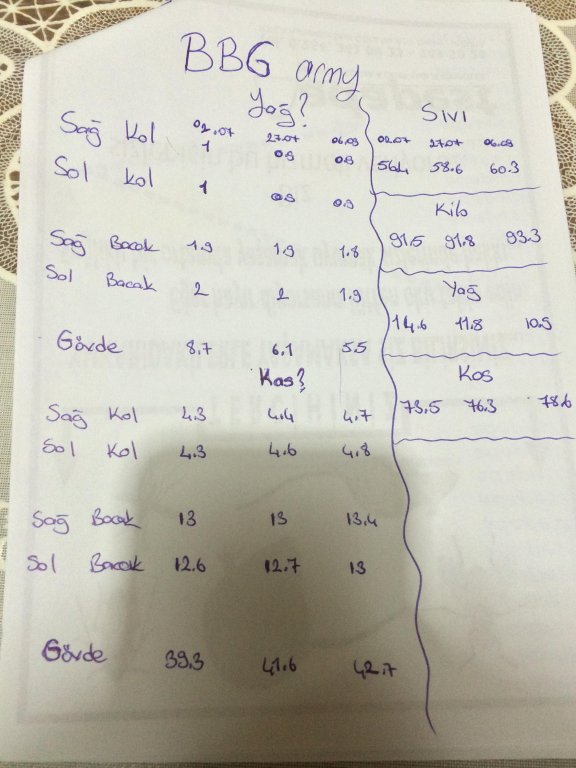 BBG army
Yağ?
02.07 27.07 06.09
Sağ Kol 1 0.9 0.9
Sol Kol 1 0.9 0.9
Sağ Bacak 1.9 1.9 1.8
Sol Bacak 2 2 1.9
Gövde 8.7 6.1 5.5
Kas?
Sağ Kol 4.3 4.4 4.7
Sol Kol 4.3 4.6 4.8
Sağ Bacak 13 13 13.4
Sol Bacak 12.6 12.7 13
Gövde 39.3 41.6 42.7
SIVI
02.07 27.07 06.09
56.4 58.6 60.3
Kilo
91.5 91.8 93.3
Yağ
14.6 11.8 10.9
Kas
73.5 76.3 78.6